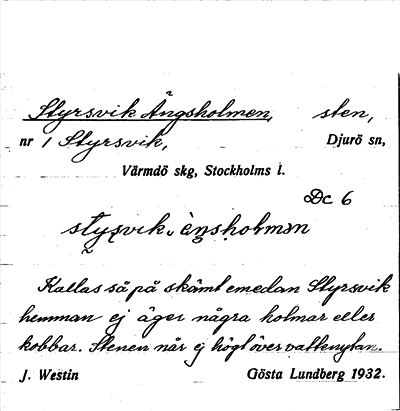 Styrsvik Ängsholmen, sten,
nr 1 Styrsvik, Djurö sn,
Värmdö skg, Stockholms l.
Dc 6
stysvik, ènsholmən
Kallas så på skämt emedan Styrsvik
hemman ej äger några holmar eller
kobbar. Stenen når ej högt över vattenytan.
J. Westin Gösta Lundberg 1932.